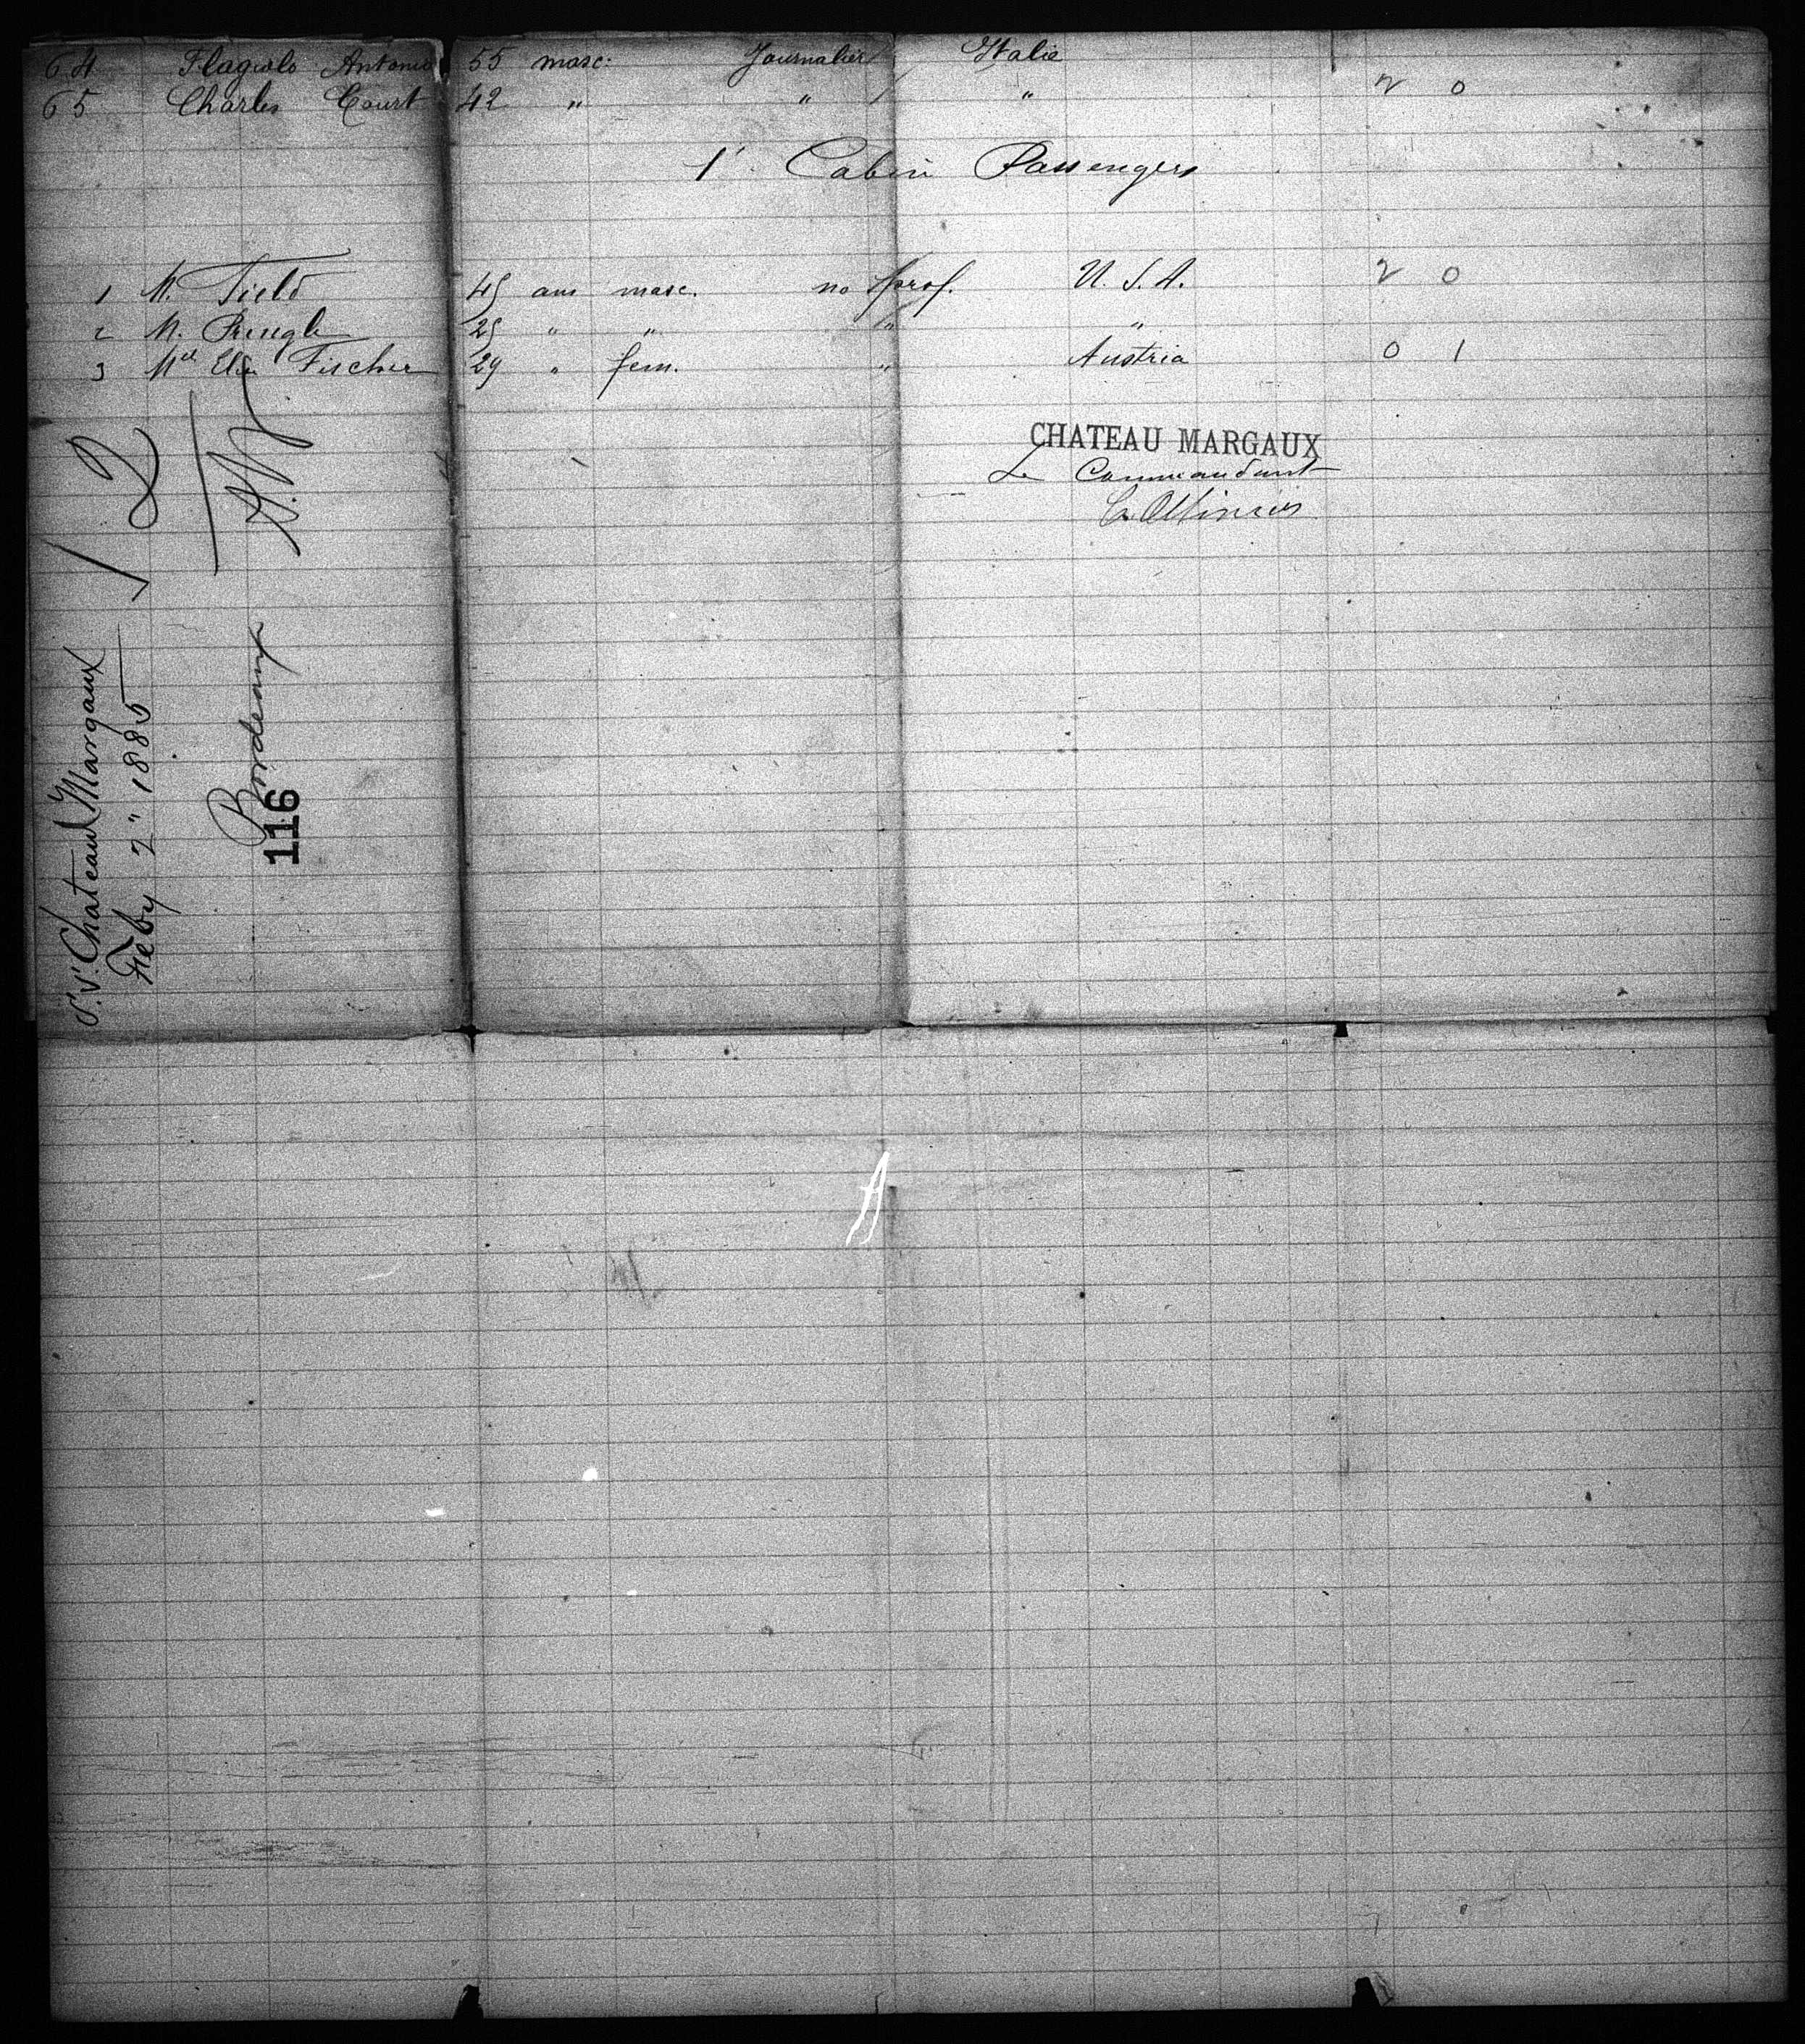 64 Flagiolo Antonio 55 masc: Journalier Italie
65 Charles Court 42 " " " 2 0
1' Cabin Passengers
1 M. Field 45 ans masc. no prof. U.S.A. 2 0
2 M. Pringle 25 " " " "
3 Mel Elsa Fischer 29 " fem. " Austria 0 1
CHATEAU MARGAUX
Le Commandant
S.S. Chateau Margaux
Feby 2" 1885
Bordeaux
116